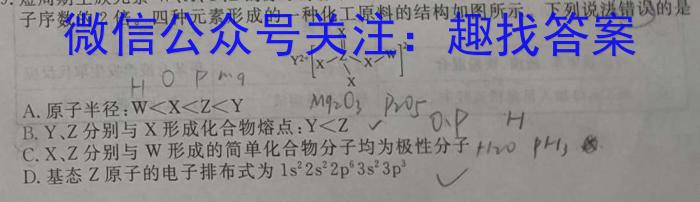 子序数的2倍。四种元素形成的一种化工原料的结构如图所示。下列说法错误的是
微信公众号关注：趣找答案
X
Y²⁺[X—Z—X—W]²⁻
X
H O P mg
A. 原子半径：W<X<Z<Y
Mg₂O₃ P₂O₅
B. Y、Z分别与X形成化合物熔点：Y<Z ✓
O、P H
C. X、Z分别与W形成的简单化合物分子均为极性分子 H₂O pH₃
D. 基态Z原子的电子排布式为1s²2s²2p⁶3s²3p³ ✓